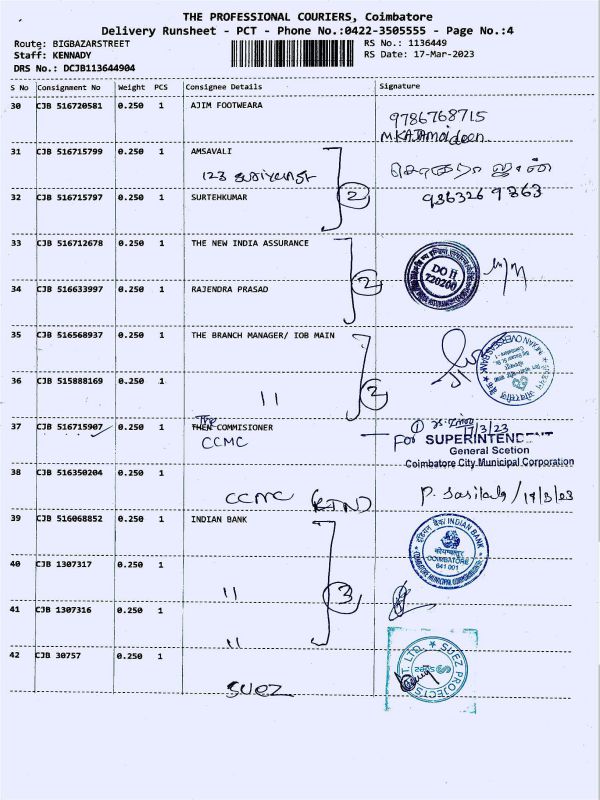 THE PROFESSIONAL COURIERS, Coimbatore
Delivery Runsheet - PCT - Phone No.:0422-3505555 - Page No.:4
Route: BIGBAZARSTREET
RS No.: 1136449
Staff: KENNADY
RS Date: 17-Mar-2023
DRS No.: DCJB113644904
S No Consignment No Weight PCS Consignee Details Signature
30 CJB 516720581 0.250 1 AJIM FOOTWEARA
9786768715
31 CJB 516715799 0.250 1 AMSAVALI
123
32 CJB 516715797 0.250 1 SURTEHKUMAR
2
9363269863
33 CJB 516712678 0.250 1 THE NEW INDIA ASSURANCE
DO II
720200
34 CJB 516633997 0.250 1 RAJENDRA PRASAD
2
35 CJB 516568937 0.250 1 THE BRANCH MANAGER/ IOB MAIN
INDIAN OVERSEAS BANK
36 CJB 515888169 0.250 1
11
2
37 CJB 516715907 0.250 1 THEN COMMISIONER
The
CCMC
1
17/3/23
For SUPERINTENDENT
General Scetion
Coimbatore City Municipal Corporation
38 CJB 516350204 0.250 1
CCMC
39 CJB 516068852 0.250 1 INDIAN BANK
INDIAN BANK
COIMBATORE
641 001
40 CJB 1307317 0.250 1
11
3
41 CJB 1307316 0.250 1
11
42 CJB 30757 0.250 1
SUEZ
SUEZ PROJECTS PVT. LTD.